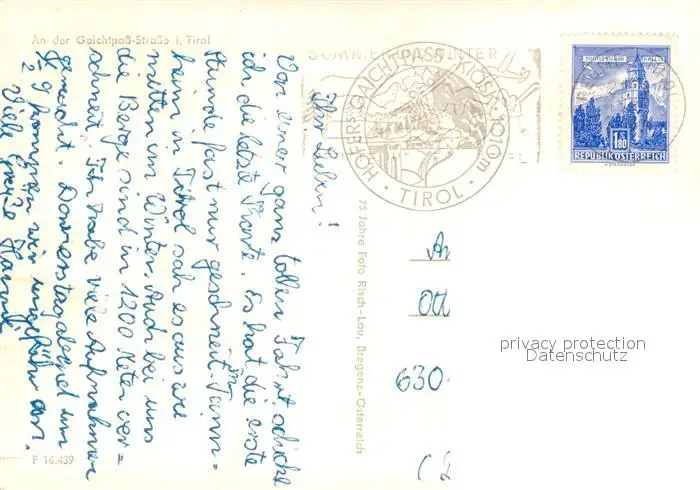 An der Gaichtpaß-Straße i. Tirol
Ihr Lieben!
Von einer ganz tollen Fahrt schicke
ich die letzte Karte. Es hat die erste
Stunde fast nur geschneit. Im Tann=
heim in Tirol sah es aus wie
mitten im Winter. Auch bei uns
die Berge sind in 1200 Meter ver=
schneit. Ich habe viele Aufnahmen
gemacht. Donnerstagabend um
1/2 9 kommen wir ungefähr an.
Viele Grüße Hanne
F 16.439
75 Jahre Foto Risch-Lau, Bregenz-Österreich
SOMMER WINTER
HÖFERS GAICHTPASS-KIOSK 1010m
· TIROL ·
MÜNZTURM HALL
1.80
REPUBLIK ÖSTERREICH
An
Ott
630
privacy protection
Datenschutz